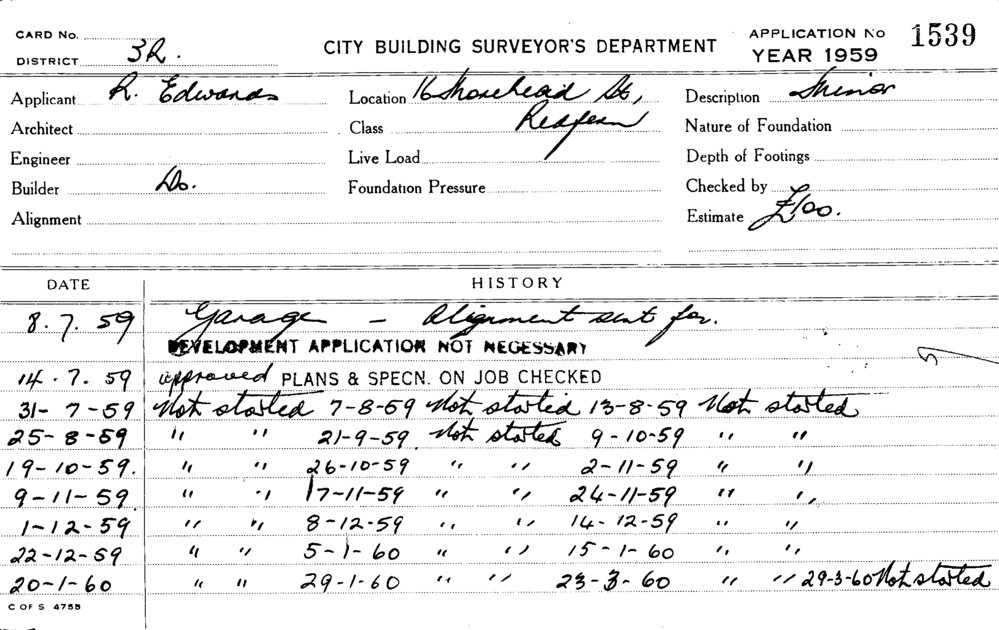 CARD No.
DISTRICT 3R.
CITY BUILDING SURVEYOR'S DEPARTMENT
APPLICATION No 1539
YEAR 1959
Applicant R. Edwards Location 16 Shorehead St, Description Minor
Architect Class Redfern Nature of Foundation
Engineer Live Load Depth of Footings
Builder Do. Foundation Pressure Checked by
Alignment Estimate £100.
DATE HISTORY
8.7.59 Garage - Alignment sent for.
DEVELOPMENT APPLICATION NOT NECESSARY
14.7.59 approved PLANS & SPECN. ON JOB CHECKED
31-7-59 Not started 7-8-59 Not started 13-8-59 Not started
25-8-59 " " 21-9-59 Not started 9-10-59 " "
19-10-59. " " 26-10-59 " " 2-11-59 " "
9-11-59 " " 17-11-59 " " 24-11-59 " "
1-12-59 " " 8-12-59 " " 14-12-59 " "
22-12-59 " " 5-1-60 " " 15-1-60 " "
20-1-60 " " 29-1-60 " " 23-3-60 " " 29-3-60 Not started
C OF S 4755